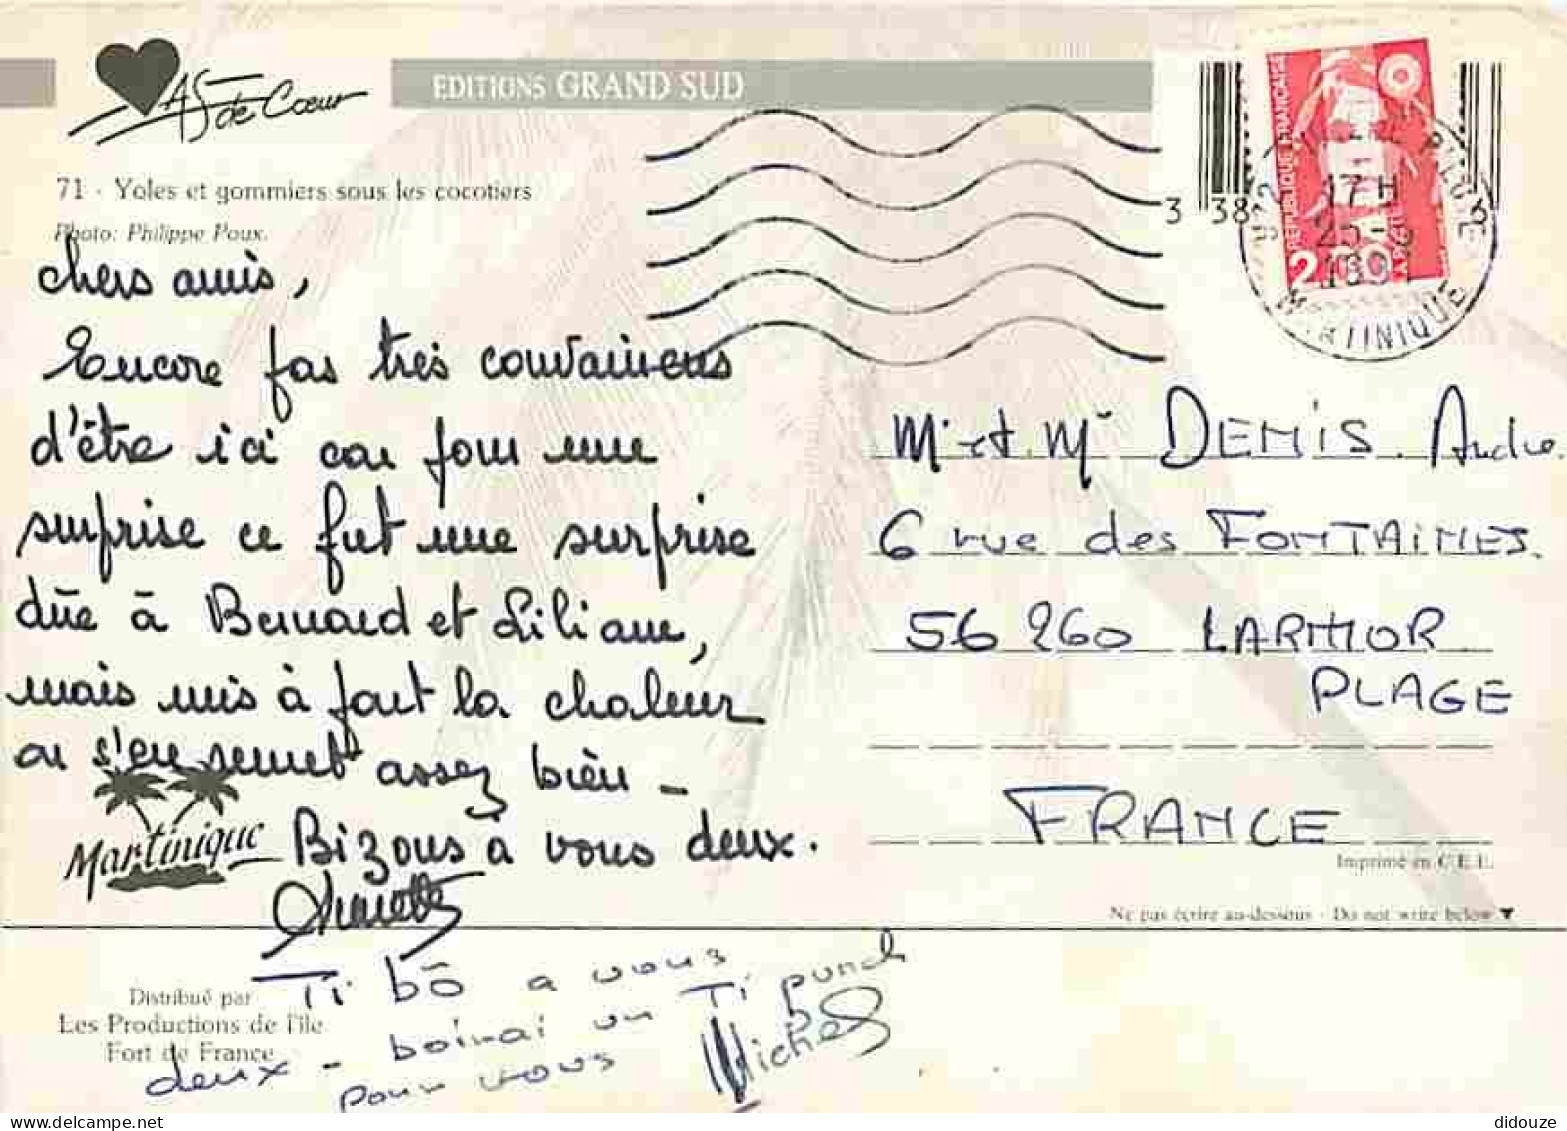 As de Cœur
EDITIONS GRAND SUD
71 - Yoles et gommiers sous les cocotiers
Photo: Philippe Poux.
chers amis,
Encore pas très convaincus
d'être ici car pour une
surprise ce fut une surprise
dûe à Bernard et Liliane,
mais mis à part la chaleur
on s'en remet assez bien -
Bizous à vous deux.
Ti bō a vous
deux - boirai un Ti punch
pour vous Michel
Martinique
Distribué par
Les Productions de l'île
Fort de France
3 38
6
REPUBLIQUE FRANÇAISE
LA POSTE
17 H
25-
MARTINIQUE
Mr et Mᵐ DENIS André
6 rue des FONTAINES.
56 260 LARMOR
PLAGE
FRANCE
Imprimé en C.E.E.
Ne pas écrire au-dessous - Do not write below ▼
didouze